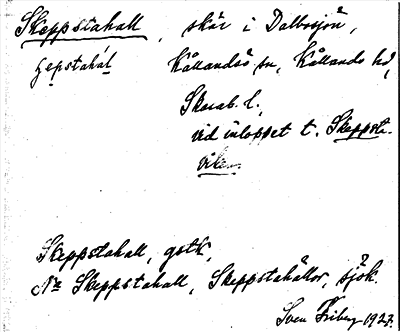 Skeppstahall, skär i Dalbosjön,
Kållandsö sn, Kållands hd,
Skarab. l.,
vid inloppet t. Skeppsta-
viken
Skeppstahall, gstk,
Skeppstahall, Skeppstahällor, sjök.
Sven Friberg 1927.